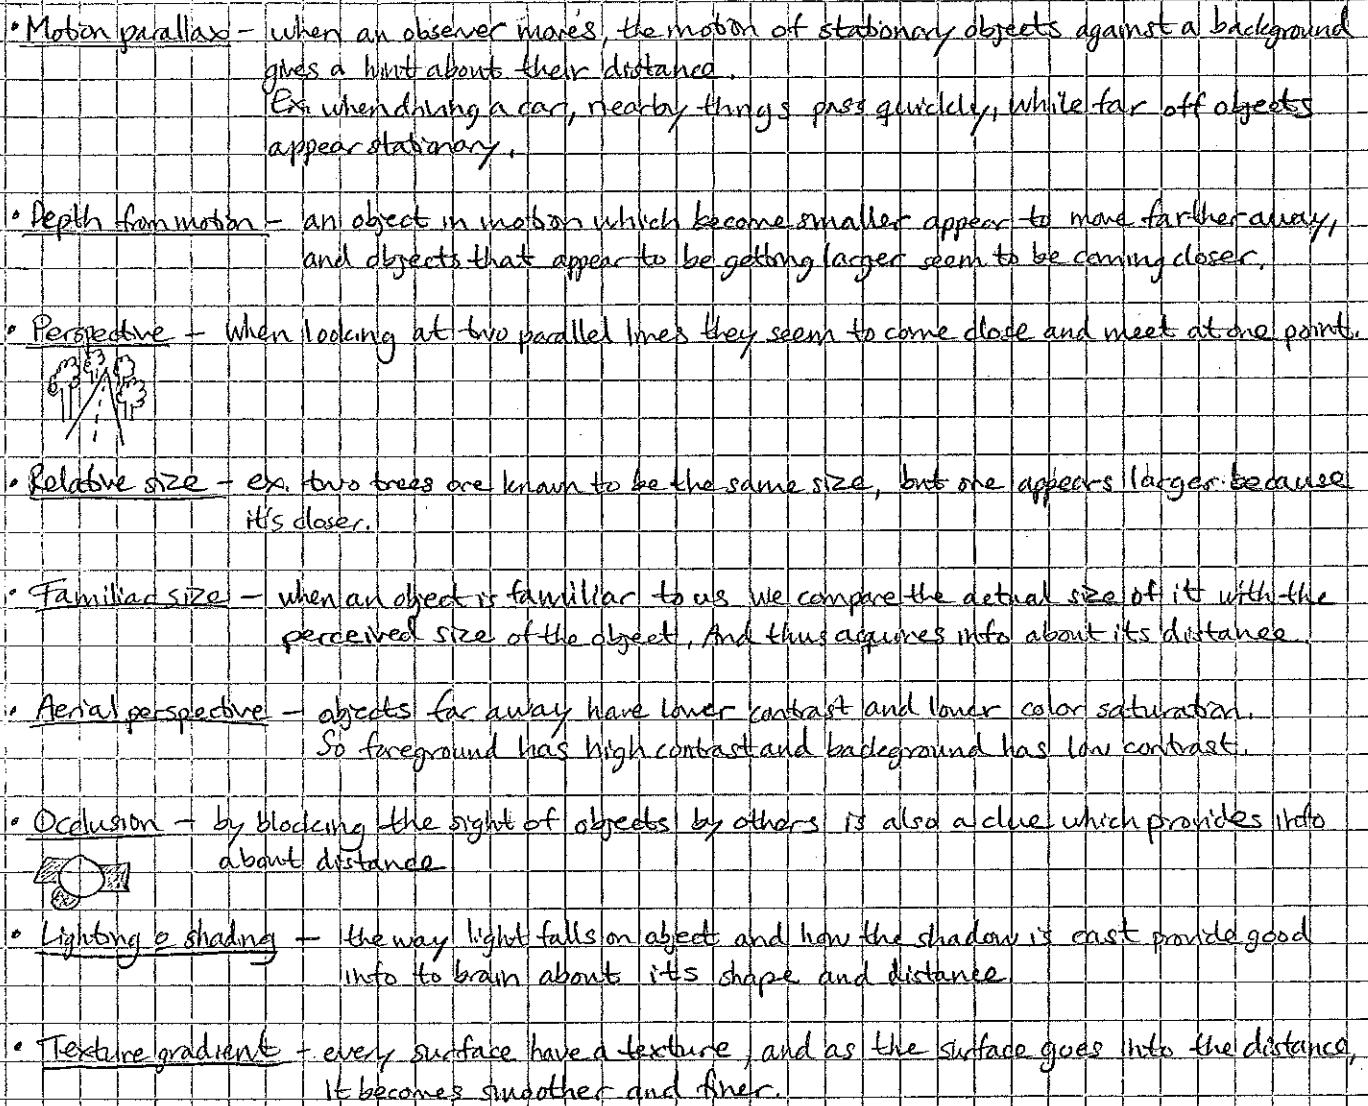 • Motion parallax – when an observer moves, the motion of stationary objects against a background
gives a hint about their distance.
Ex. when driving a car, nearby things pass quickly, while far off objects
appear stationary.
• Depth from motion – an object in motion which become smaller appear to move farther away,
and objects that appear to be getting larger seem to be coming closer.
• Perspective – when looking at two parallel lines they seem to come close and meet at one point.
• Relative size – ex. two trees are known to be the same size, but one appears larger because
it's closer.
• Familiar size – when an object is familiar to us we compare the actual size of it with the
perceived size of the object. And thus acquires info about its distance.
• Aerial perspective – objects far away have lower contrast and lower color saturation.
So foreground has high contrast and background has low contrast.
• Occlusion – by blocking the sight of objects by others is also a clue which provides info
about distance
• Lighting & shading – the way light falls on object and how the shadow is cast provide good
info to brain about its shape and distance
• Texture gradient – every surface have a texture, and as the surface goes into the distance,
it becomes smoother and finer.